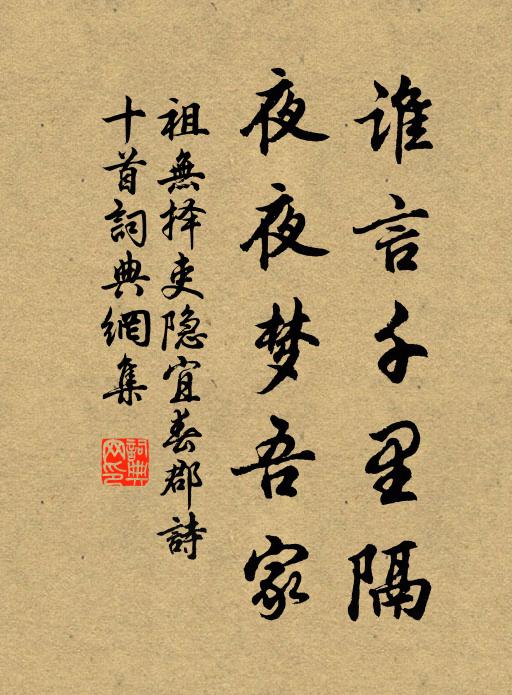 谁言千里隔
夜夜梦吾家
祖無择吏隐宜春郡詩
十首詞典網集
詞典網印